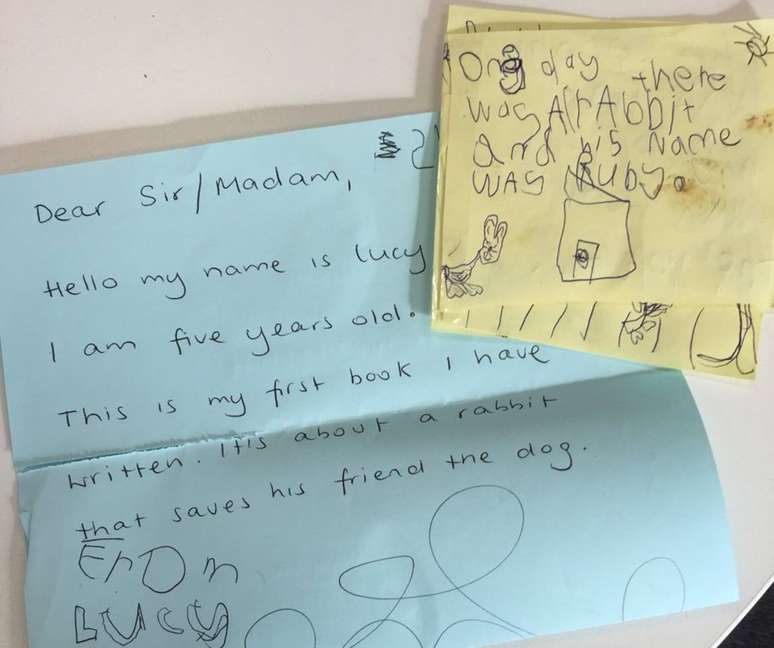 Dear Sir/Madam,
Hello my name is Lucy
I am five years old.
This is my first book I have
written. It is about a rabbit
that saves his friend the dog.
ErOm
LUCY
One day there
was A rAbbit
and his Name
was Ruby.